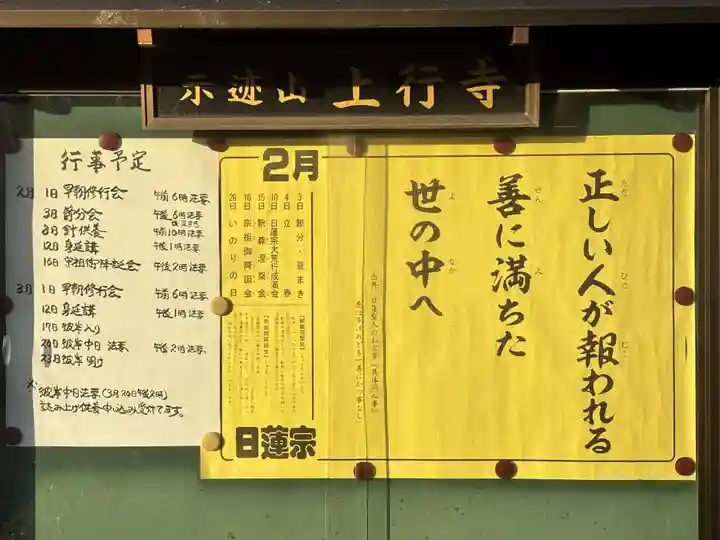 示迹山 上行寺
行事予定
2月 1日 早朝修行会 午前6時法要
3日 節分会 午後6時法要
8日 針供養 午前10時法要
12日 身延講 午後1時法要
16日 宗祖御降誕会 午後2時法要
3月 1日 早朝修行会 午前6時法要
12日 身延講 午後1時法要
17日 彼岸入り
20日 彼岸中日法要 午後2時法要
23日 彼岸明け
彼岸中日法要(3月20日午後2時)
読み上げ供養申し込み受付てます。
正しい人が報われる
ただ ひと むく
善に満ちた
ぜん み
世の中へ
よ なか
2月
3日 節分・豆まき
4日 立春
10日 日蓮宗大荒行成満会
15日 釈尊涅槃会
16日 宗祖御降誕会
28日 いのりの日
日蓮宗